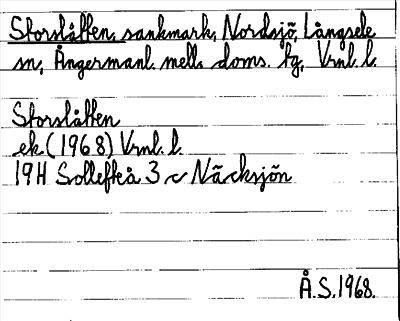 Storslåtten, sankmark, Nordsjö, Långsele
sn, Ångermanl. mell. doms. tg, Vrnl. l.
Storslåtten
ek. (1968) Vrnl. l.
19H Sollefteå 3 c Näcksjön
Å.S. 1968.